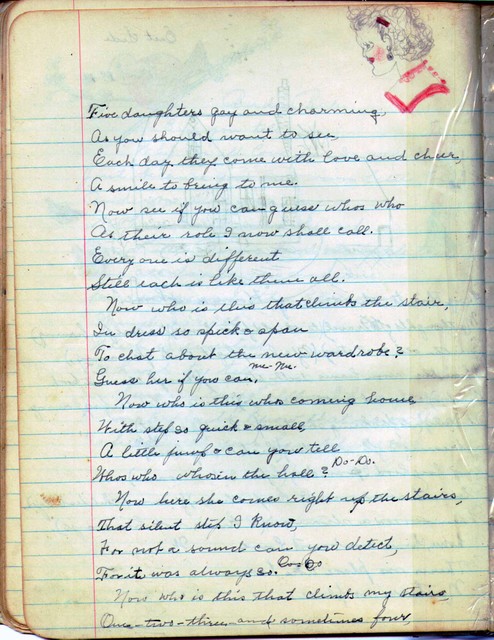 Five daughters gay and charming,
As you should want to see
Each day they come with love and cheer,
A smile to bring to me.
Now see if you can guess whos who
As their role I now shall call.
Everyone is different
Still each is like them all.
Now who is this that climbs the stair,
In dress so spick & span
To chat about the new wardrobe?
Guess her if you can,
Now who is this whos coming home
With step so quick & small
A little & can you tell
Whos who whos in the hall? Do-Do.
Now here she comes right up the stairs,
That silent step I know,
For not a sound can you detect,
For it was always so.
Now who is this that climbs my stairs
One-two-three-and sometimes four,